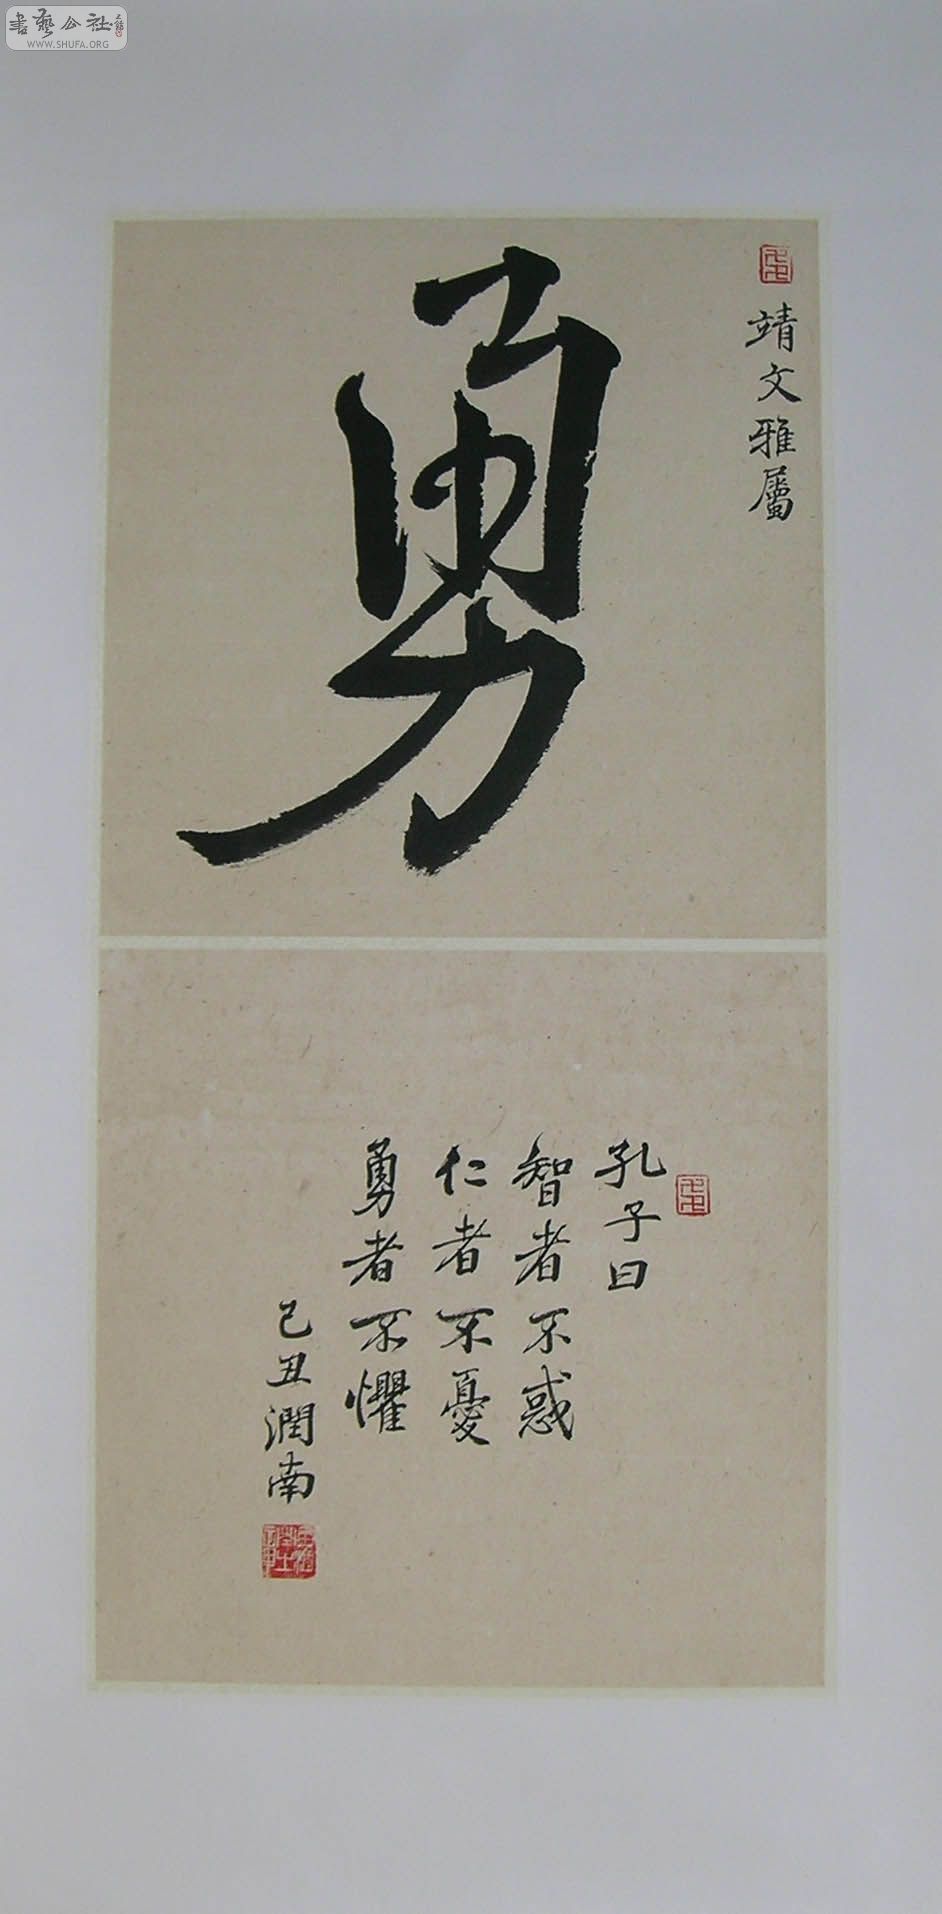 書藝公社
WWW.SHUFA.ORG
靖文雅屬
勇
孔子曰
智者不惑
仁者不憂
勇者不懼
己丑潤南